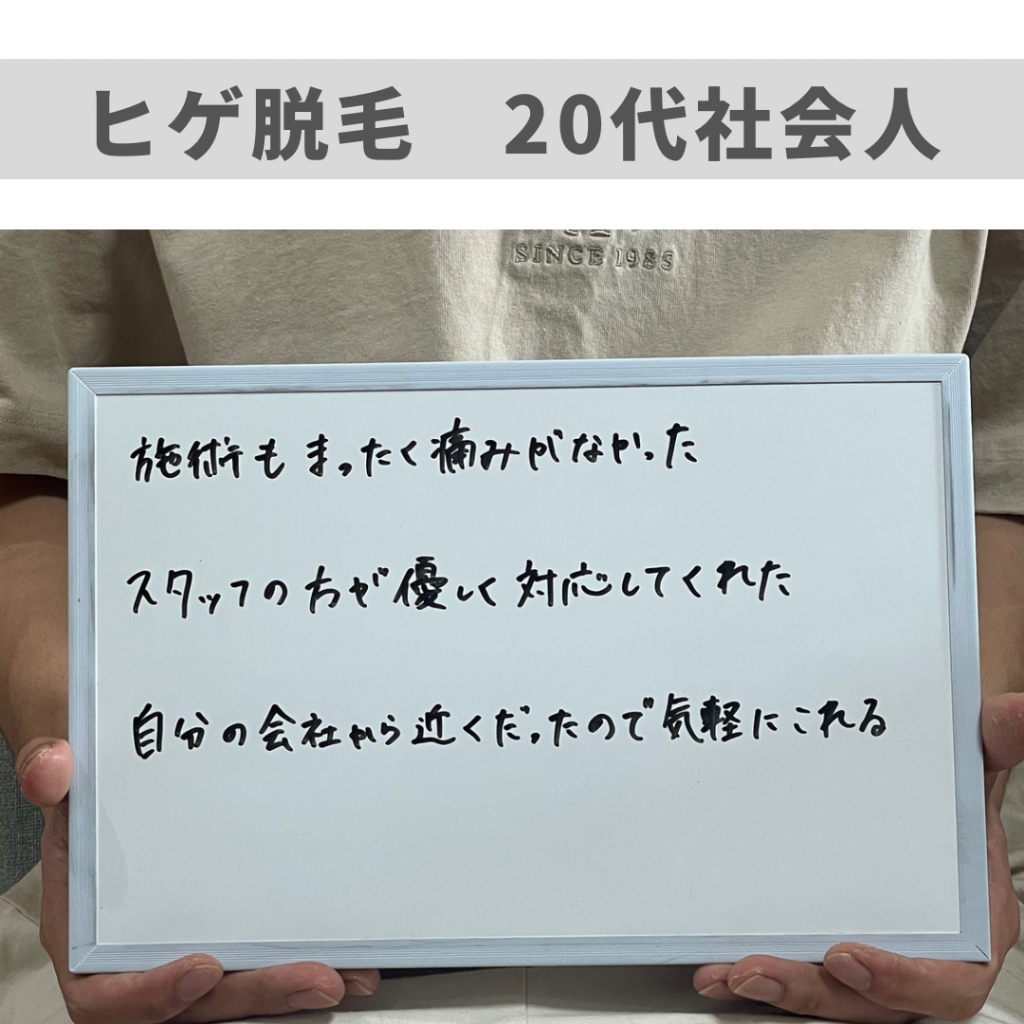 ヒゲ脱毛　20代社会人
SINCE 1985
施術もまったく痛みがなかった
スタッフの方が優しく対応してくれた
自分の会社から近くだったので気軽にこれる